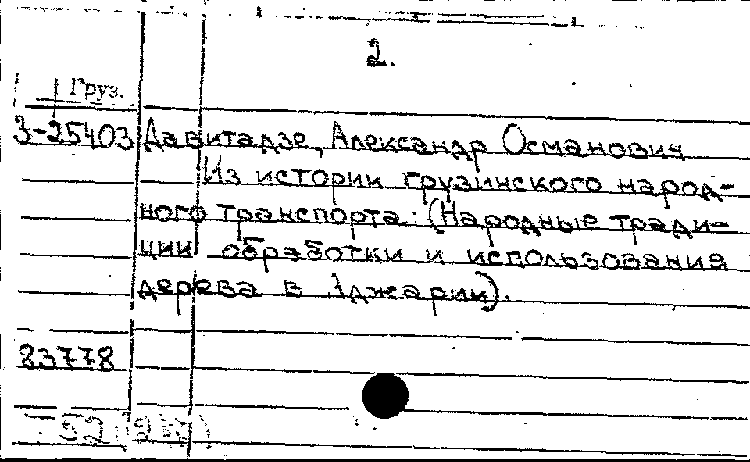 2.
Груз.
3-25403 Давитадзе, Александр Османович
Из истории грузинского народ-
ного транспорта: (Народные тради-
ции обработки и использования
дерева в Аджарии).
83778